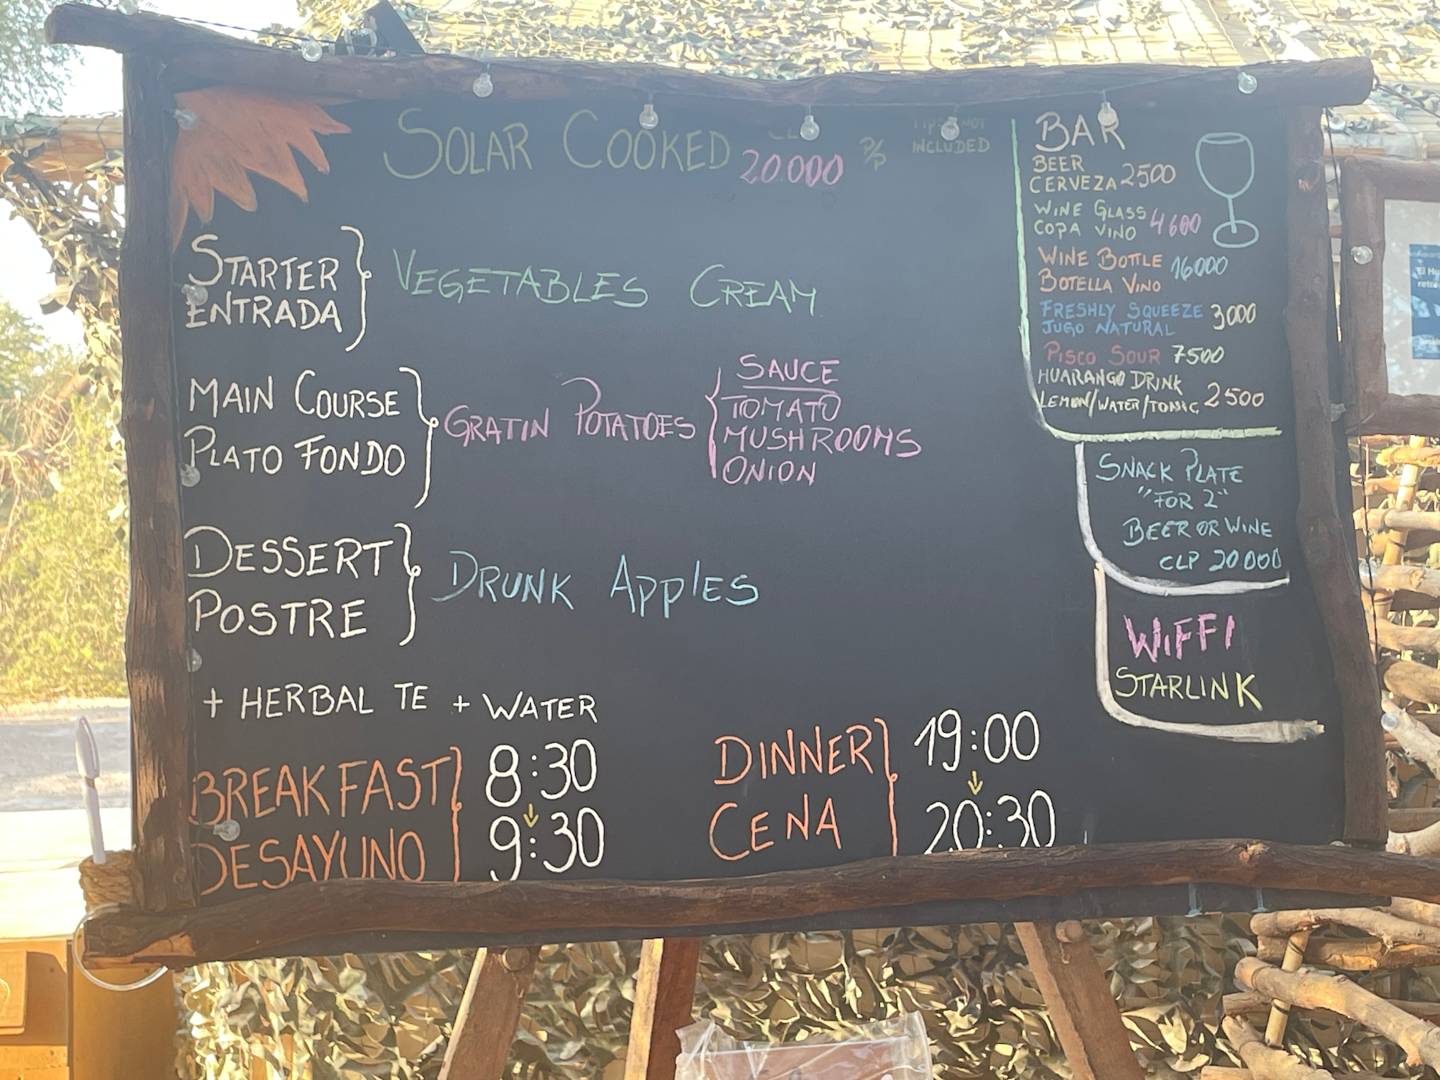 SOLAR COOKED CLP 20000 P/P
NOT
INCLUDED
STARTER
ENTRADA
VEGETABLES CREAM
MAIN COURSE
PLATO FONDO
GRATIN POTATOES
SAUCE
TOMATO
MUSHROOMS
ONION
DESSERT
POSTRE
DRUNK APPlES
+ HERBAL TE + WATER
BREAKFAST
DESAYUNO
8:30
9:30
DINNER
CENA
19:00
20:30
BAR
BEER
CERVEZA 2500
WINE GLASS
COPA VINO 4600
WINE BOTTLE 16000
BOTELLA VINO
FRESHLY SQUEEZE 3000
JUGO NATURAL
PISCO SOUR 7500
HUARANGO DRINK
LEMON/WATER/TONIC 2500
SNACK PLATE
"FOR 2"
BEER OR WINE
CLP 20000
WiFFI
STARLINK